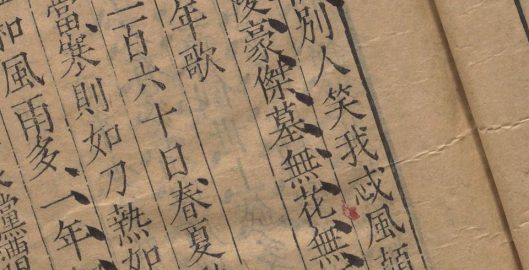 別人笑我忒風
陵豪傑墓無花無
年歌
三百六十日春夏
當寒則如刀熱如
和風雨多一年
黨遭